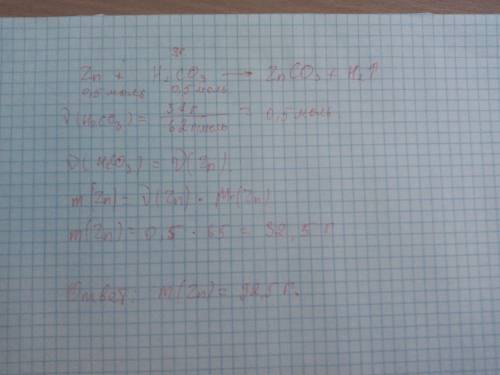 31
Zn + H₂CO₃ → ZnCO₃ + H₂↑
0,5 моль 0,5 моль
ν(H₂CO₃) = 31г / 62г/моль = 0,5 моль
ν(H₂CO₃) = ν(Zn)
m(Zn) = ν(Zn) · Mr(Zn)
m(Zn) = 0,5 · 65 = 32,5 г
Ответ: m(Zn) = 32,5 г.